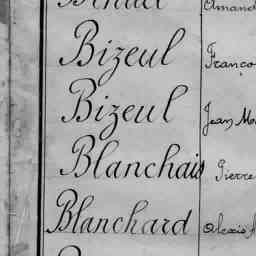 Bizeul Franço
Bizeul Jean Ma
Blanchais Pierre
Blanchard Alexis